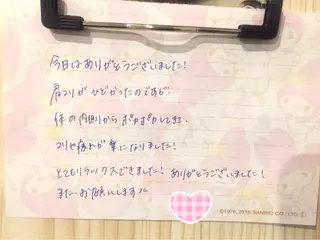 今日はありがとうございました!
肩コリがひどかったのですが、
体の内側からポカポカしてきて、
コリや疲れが楽になりました!
とてもリラックスできました! ありがとうございました!
またお願いします
©1976, 2015 SANRIO CO., LTD.